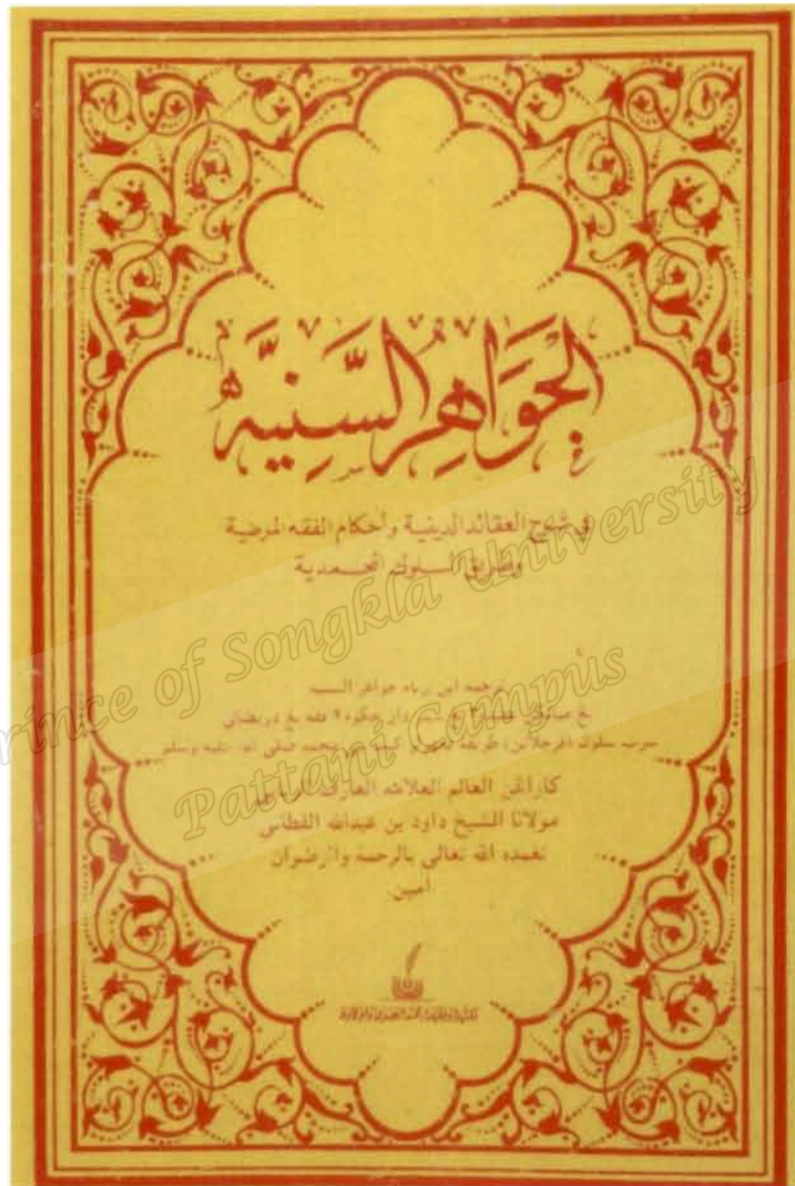 الجواهر السنيه
في شرح العقائد الدينية وأحكام الفقه المرضية
وطريق السلوك المحمدية
ترجمه اين برنام جواهر السنيه
فقه يڠ دريضائي
سلوك طريقة محمد صلى الله عليه وسلم
كارڠن العالم العلامه العارف الرباني
مولانا الشيخ داود بن عبدالله الفطاني
تغمده الله تعالى بالرحمة والرضوان
امين
Prince of Songkla University
Pattani Campus